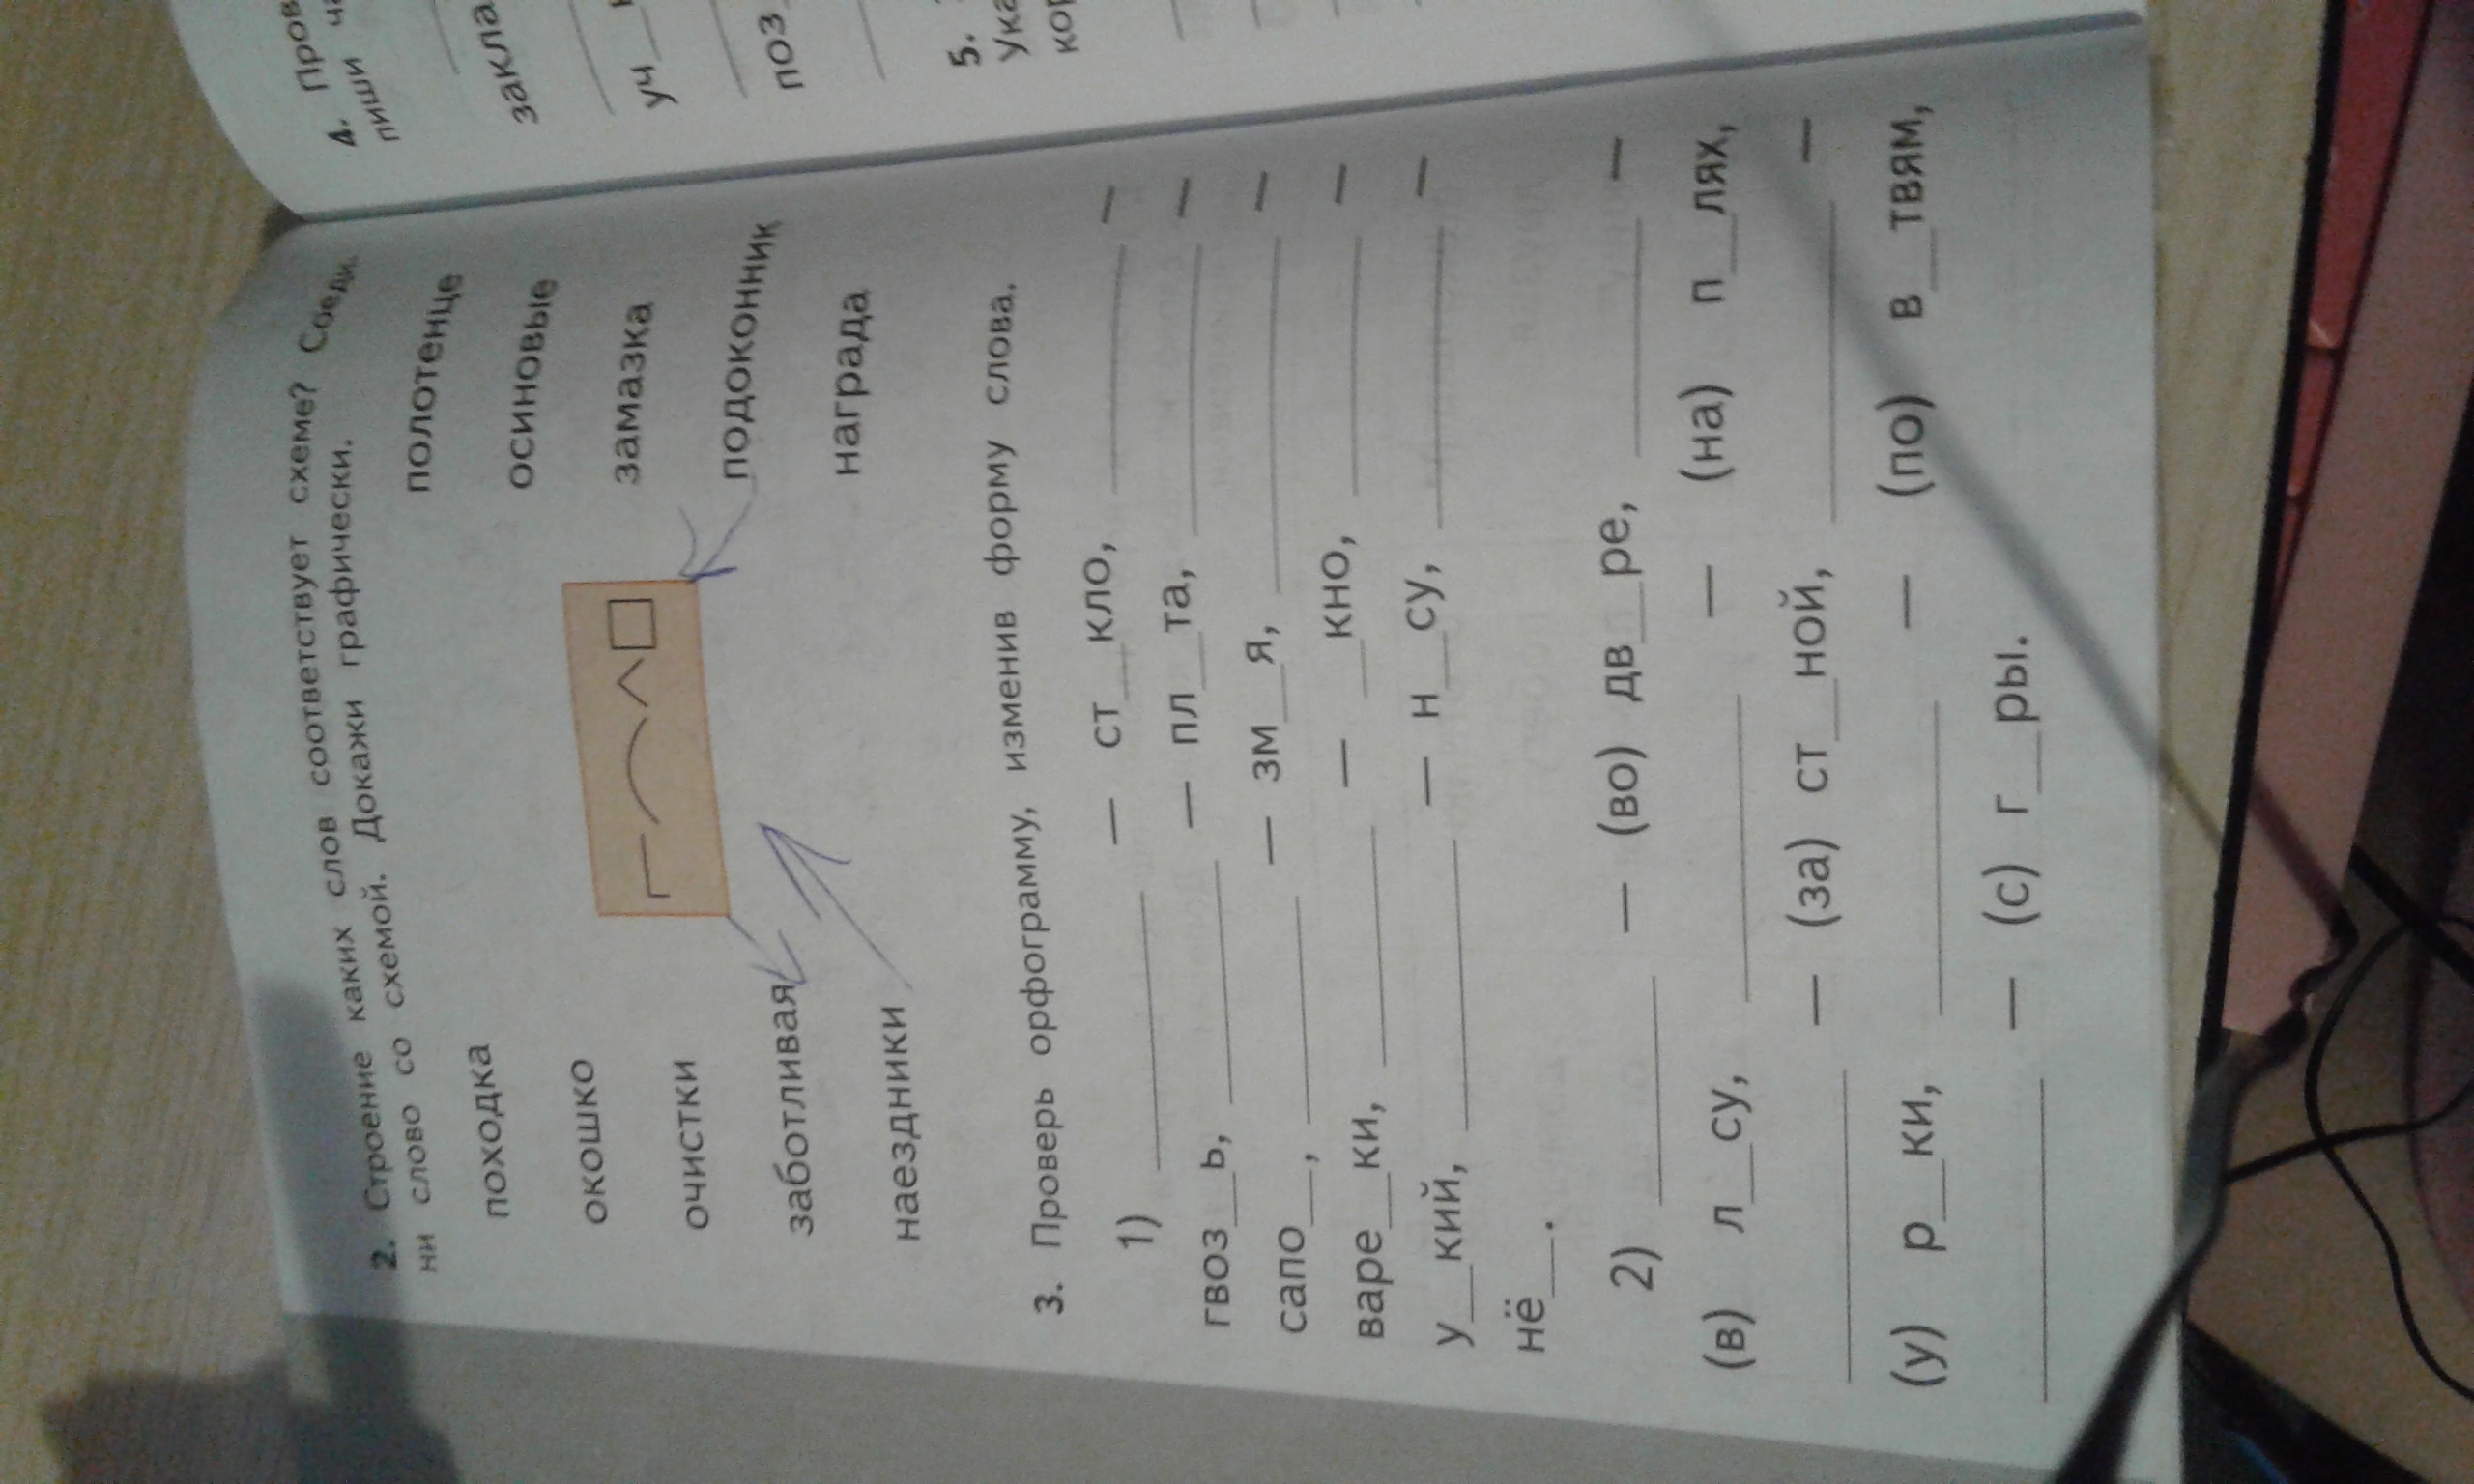 2. Строение каких слов соответствует схеме? Соеди-
ни слово со схемой. Докажи графически.
походка полотенце
окошко осиновые
очистки замазка
заботливая подоконник
наездники награда
3. Проверь орфограмму, изменив форму слова.
1) ____ — ст__кло, ____ —
гвоз__ь, ____ — пл__та, ____ —
сапо__, ____ — зм__я, ____ —
варе__ки, ____ — __кно, ____ —
у__кий, ____ — н__су, ____ —
нё__.
2) ____ — (во) дв__ре, ____ —
(в) л__су, ____ — (на) п__лях,
____ — (за) ст__ной, ____ —
(у) р__ки, ____ — (по) в__твям,
____ — (с) г__ры.
4. Пров
пиши ча
закла
уч__
поз
5.
Ука
кор